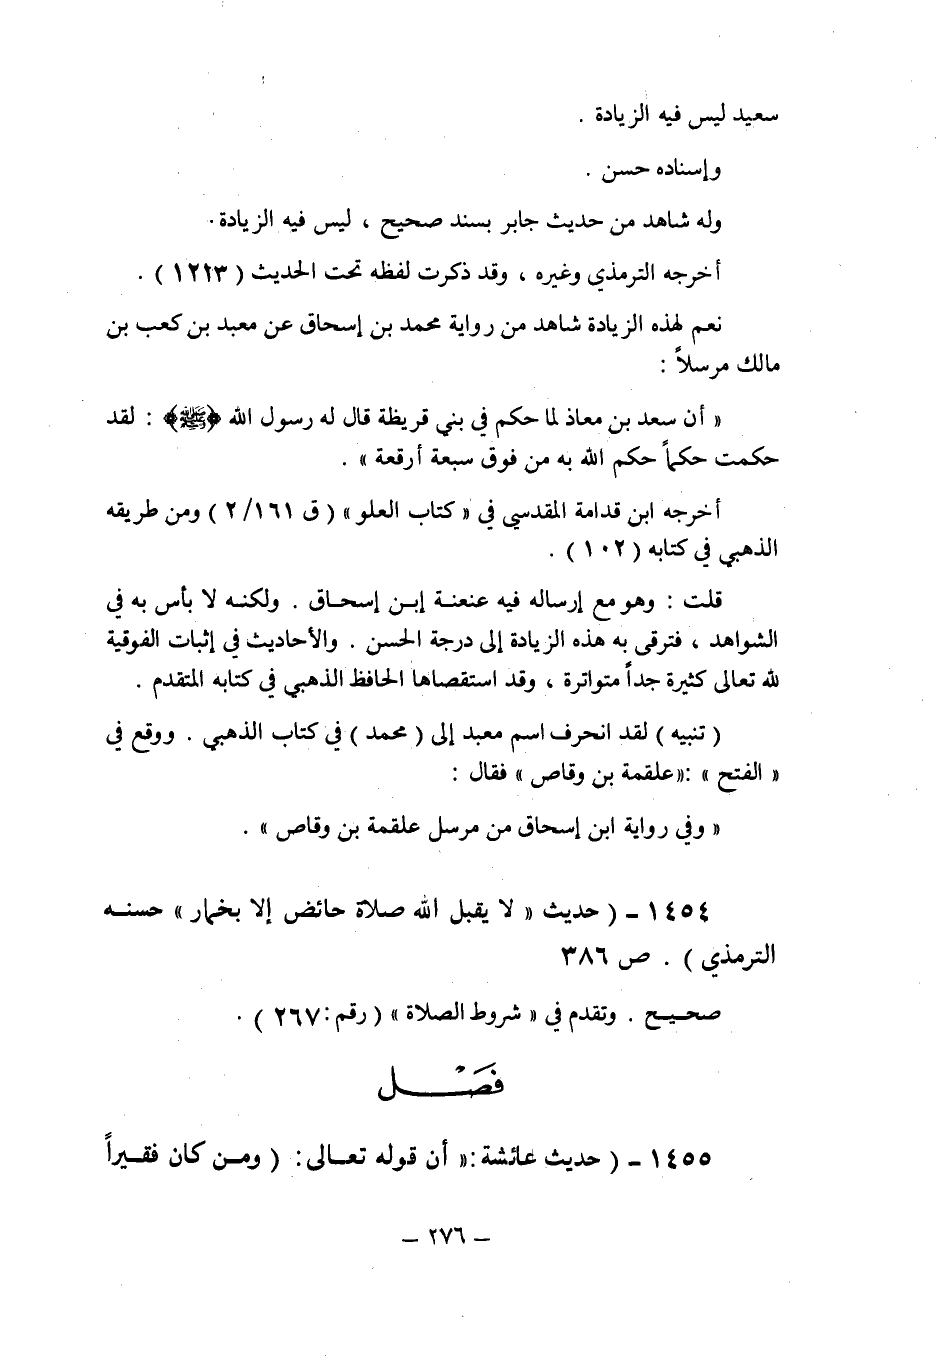 سعيد ليس فيه الزيادة .
وإسناده حسن .
وله شاهد من حديث جابر بسند صحيح ، ليس فيه الزيادة .
أخرجه الترمذي وغيره ، وقد ذكرت لفظه تحت الحديث ( ١٢٢٣ ) .
نعم لهذه الزيادة شاهد من رواية محمد بن إسحاق عن معبد بن كعب بن
مالك مرسلاً :
« أن سعد بن معاذ لما حكم في بني قريظة قال له رسول الله ﴿ﷺ﴾ : لقد
حكمت حكماً حكم الله به من فوق سبعة أرقعة » .
أخرجه ابن قدامة المقدسي في « كتاب العلو » ( ق ٢/١٦١ ) ومن طريقه
الذهبي في كتابه ( ١٠٢ ) .
قلت : وهو مع إرساله فيه عنعنة إبن إسحاق . ولكنه لا بأس به في
الشواهد ، فترقى به هذه الزيادة إلى درجة الحسن . والأحاديث في إثبات الفوقية
لله تعالى كثيرة جداً متواترة ، وقد استقصاها الحافظ الذهبي في كتابه المتقدم .
( تنبيه ) لقد انحرف اسم معبد إلى ( محمد ) في كتاب الذهبي . ووقع في
« الفتح » :«علقمة بن وقاص » فقال :
« وفي رواية ابن إسحاق من مرسل علقمة بن وقاص » .
١٤٥٤ - ( حديث « لا يقبل الله صلاة حائض إلا بخمار » حسنه
الترمذي ) . ص ٣٨٦
صحيح . وتقدم في « شروط الصلاة » ( رقم : ٢٦٧ ) .
فَصْل
١٤٥٥ - ( حديث عائشة :« أن قوله تعالى : ( ومن كان فقيراً
- ٢٧٦ -